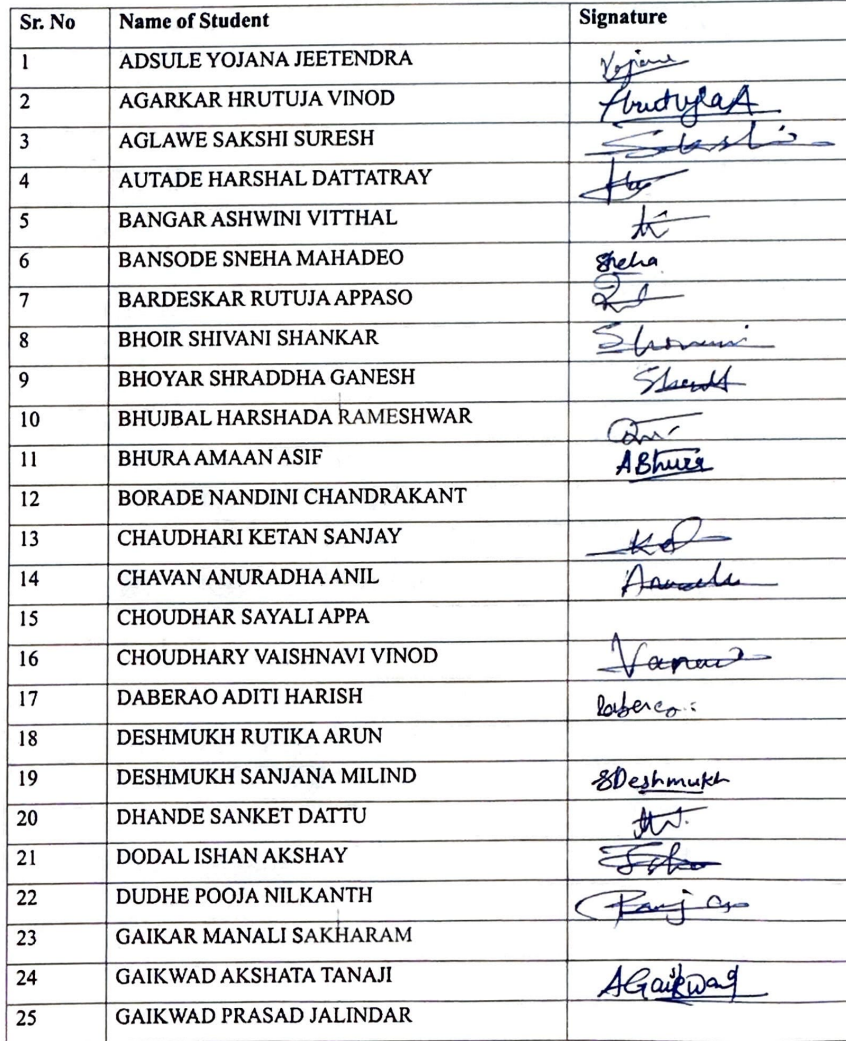 Sr. No Name of Student Signature
1 ADSULE YOJANA JEETENDRA Yojana
2 AGARKAR HRUTUJA VINOD HrutujaA
3 AGLAWE SAKSHI SURESH Sakshi
4 AUTADE HARSHAL DATTATRAY
5 BANGAR ASHWINI VITTHAL
6 BANSODE SNEHA MAHADEO Sneha
7 BARDESKAR RUTUJA APPASO
8 BHOIR SHIVANI SHANKAR
9 BHOYAR SHRADDHA GANESH
10 BHUJBAL HARSHADA RAMESHWAR
11 BHURA AMAAN ASIF ABhura
12 BORADE NANDINI CHANDRAKANT
13 CHAUDHARI KETAN SANJAY
14 CHAVAN ANURADHA ANIL
15 CHOUDHAR SAYALI APPA
16 CHOUDHARY VAISHNAVI VINOD
17 DABERAO ADITI HARISH
18 DESHMUKH RUTIKA ARUN
19 DESHMUKH SANJANA MILIND SDeshmukh
20 DHANDE SANKET DATTU
21 DODAL ISHAN AKSHAY
22 DUDHE POOJA NILKANTH
23 GAIKAR MANALI SAKHARAM
24 GAIKWAD AKSHATA TANAJI AGaikwad
25 GAIKWAD PRASAD JALINDAR